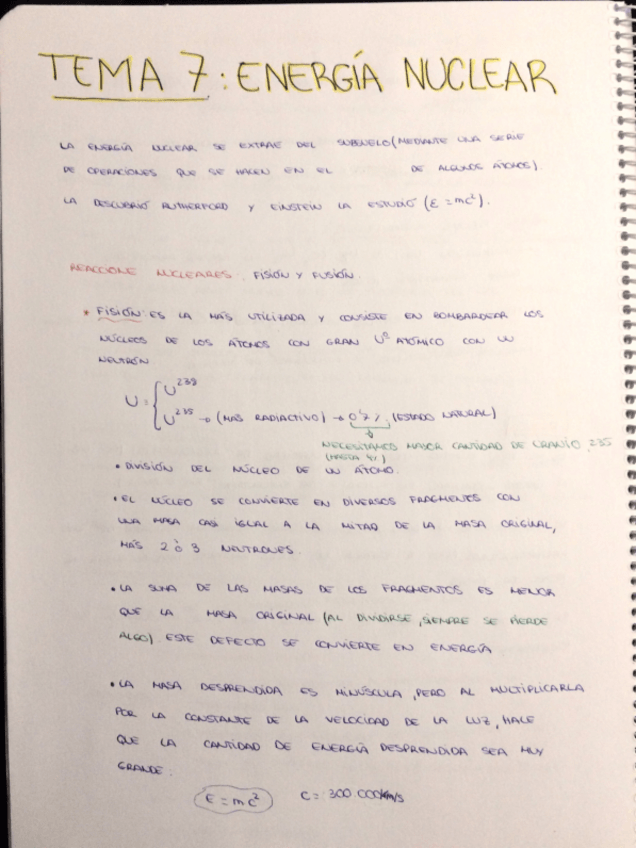 TEMA 7: ENERGÍA NUCLEAR
LA ENERGÍA NUCLEAR SE EXTRAE DEL SUBSUELO (MEDIANTE UNA SERIE
DE OPERACIONES QUE SE HACEN EN EL DE ALGUNOS ÁTOMOS).
LA DESCUBRIÓ RUTHERFORD Y EINSTEIN LA ESTUDIÓ (E = mc²).
REACCIONE NUCLEARES: FISIÓN Y FUSIÓN.
* FISIÓN: ES LA MÁS UTILIZADA Y CONSISTE EN BOMBARDEAR LOS
NÚCLEOS DE LOS ÁTOMOS CON GRAN Nº ATÓMICO CON UN
NEUTRÓN
U = { U²³⁸
U²³⁵ → (MAS RADIACTIVO) → 0'7% (ESTADO NATURAL)
NECESITAMOS MAYOR CANTIDAD DE URANIO 235
(HASTA 4%)
• DIVISIÓN DEL NÚCLEO DE UN ÁTOMO.
• EL NÚCLEO SE CONVIERTE EN DIVERSOS FRAGMENTOS CON
UNA MASA CASI IGUAL A LA MITAD DE LA MASA ORIGINAL,
MÁS 2 ó 3 NEUTRONES.
• LA SUMA DE LAS MASAS DE LOS FRAGMENTOS ES MENOR
QUE LA MASA ORIGINAL (AL DIVIDIRSE, SIEMPRE SE PIERDE
ALGO) ESTE DEFECTO SE CONVIERTE EN ENERGÍA
• LA MASA DESPRENDIDA ES MINÚSCULA, PERO AL MULTIPLICARLA
POR LA CONSTANTE DE LA VELOCIDAD DE LA LUZ, HACE
QUE LA CANTIDAD DE ENERGÍA DESPRENDIDA SEA MUY
GRANDE.
E = mc² C = 300.000 km/s